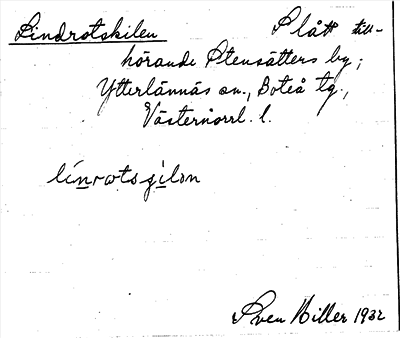 Lindrotskilen Slått till-
hörande Stensätters by;
Ytterlännäs sn., Boteå tg.,
Västernorrl. l.
línrotsgilon
Sven Hiller 1932